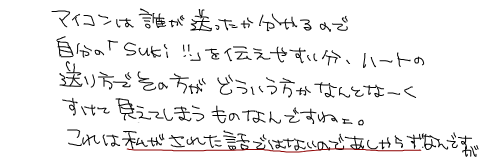 マイコンは誰が送ったか分かるので
自分の「Suki !!」を伝えやすい分、ハートの
送り方でその方がどういう方かなんとなーく
すけて見えてしまうものなんですねェ。
これは私がされた話ではないのであしからずなんですが